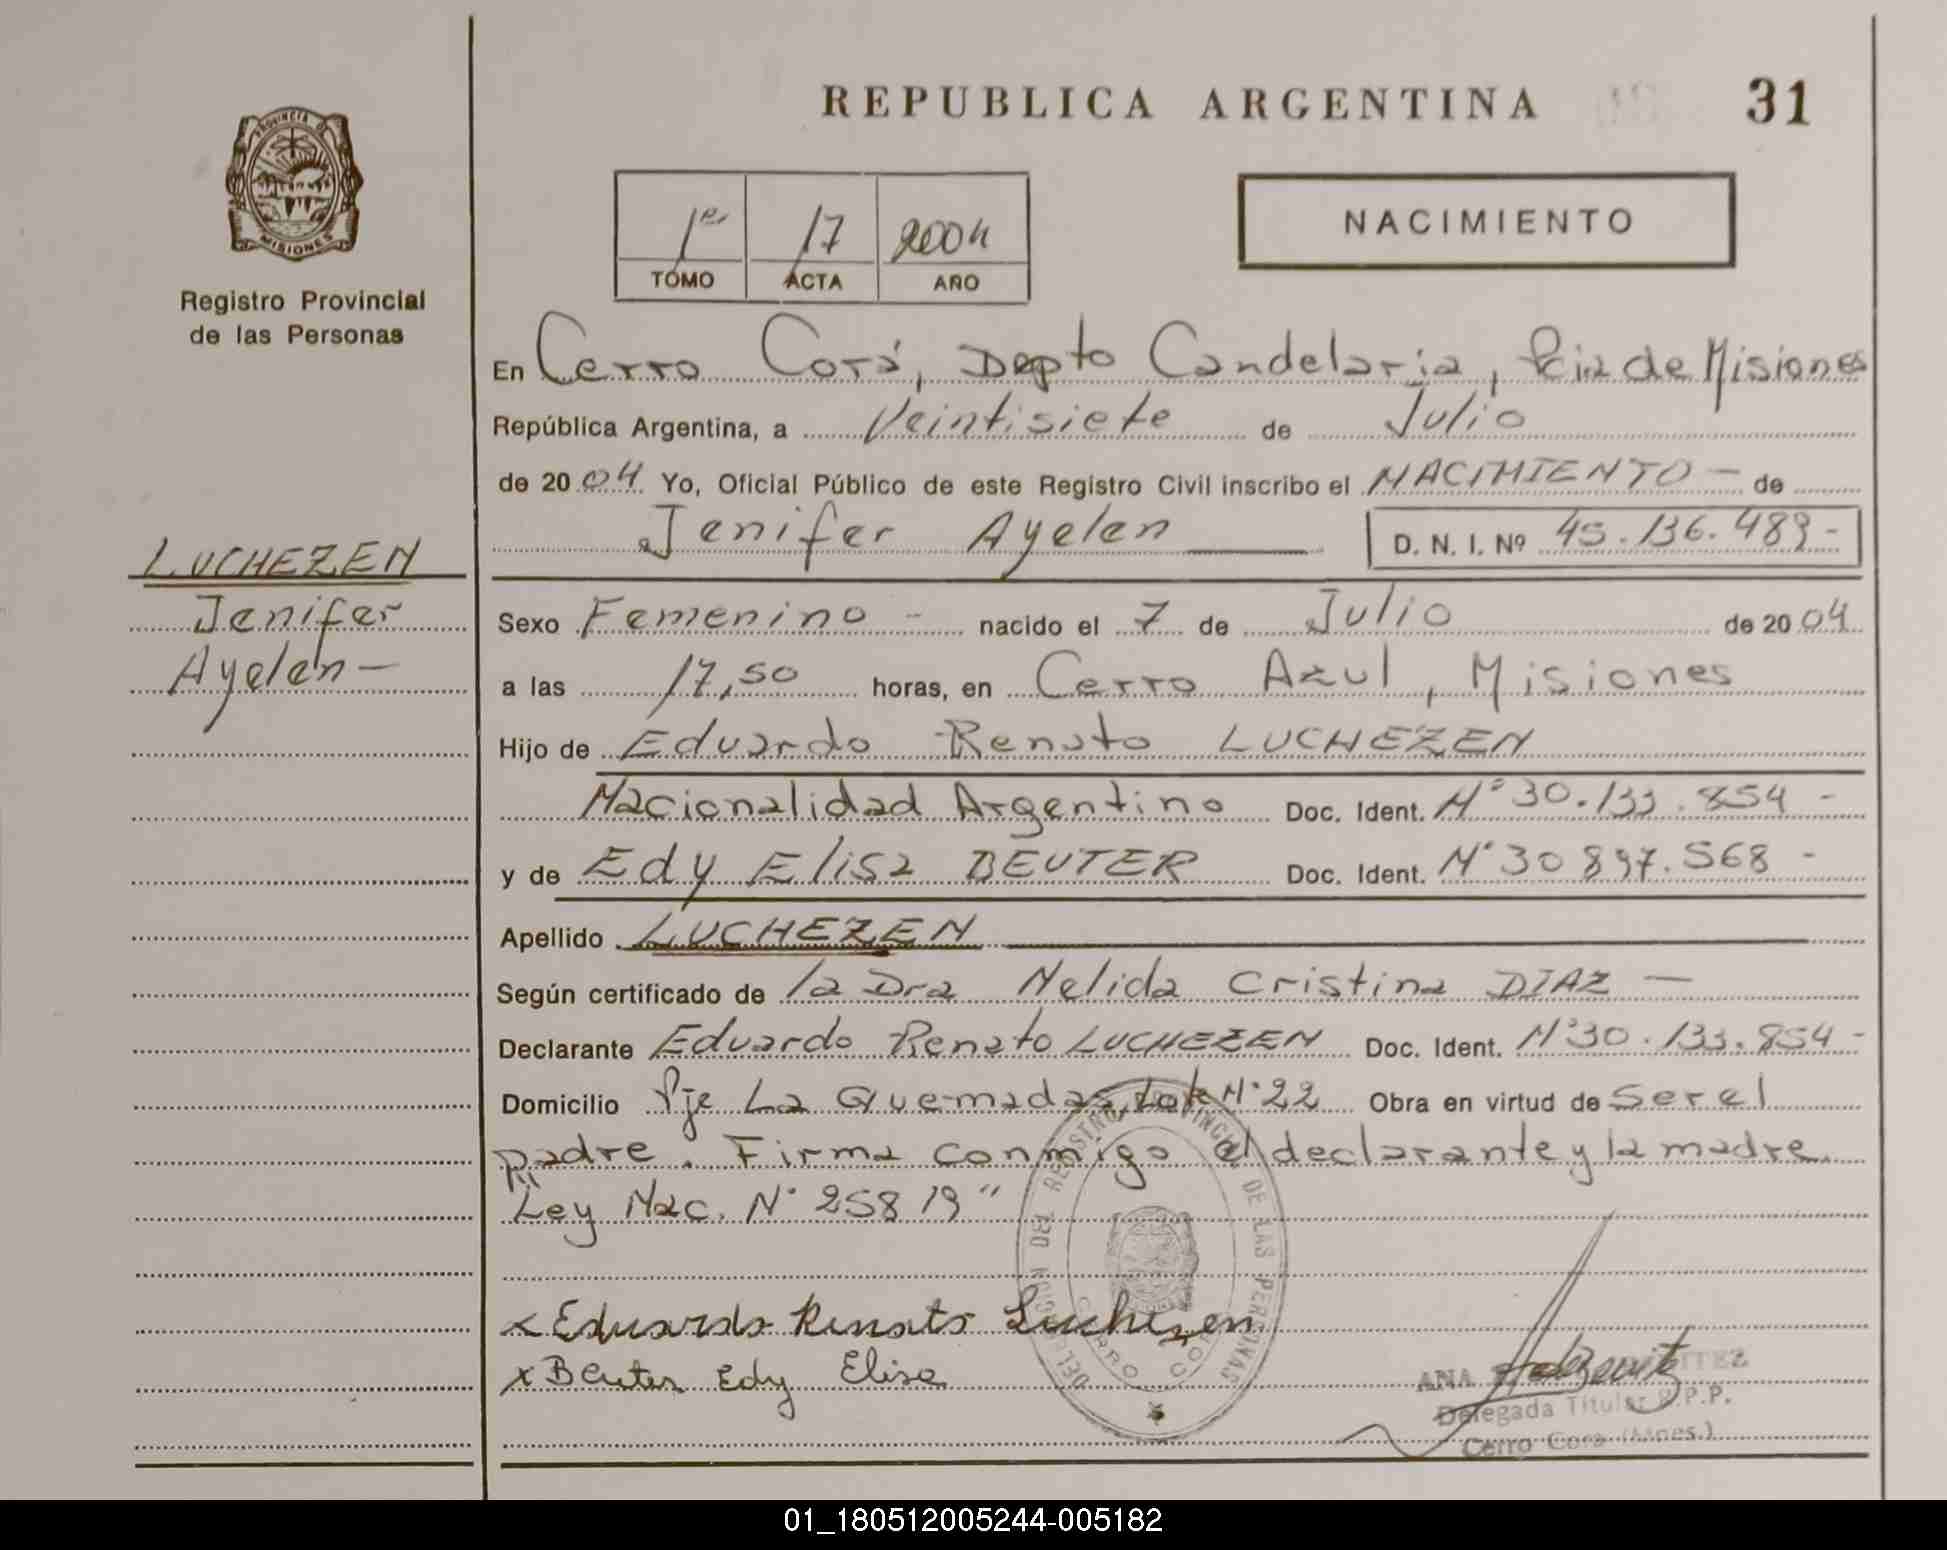 REPUBLICA ARGENTINA 31
PROVINCIA DE
MISIONES
Registro Provincial
de las Personas
1er 17 2004
TOMO ACTA AÑO
NACIMIENTO
En Cerro Corá, Depto Candelaria, Pcia de Misiones
República Argentina, a Veintisiete de Julio
de 2004 Yo, Oficial Público de este Registro Civil inscribo el NACIMIENTO - de
Jenifer Ayelen
D. N. I. Nº 45.136.489-
LUCHEZEN
Jenifer
Ayelen-
Sexo Femenino - nacido el 7 de Julio de 2004
a las 17,50 horas, en Cerro Azul, Misiones
Hijo de Eduardo Renato LUCHEZEN
Nacionalidad Argentino Doc. Ident. N° 30.133.854 -
y de Edy Elisa BEUTER Doc. Ident. N° 30 897.568 -
Apellido LUCHEZEN
Según certificado de la Dra Nelida Cristina DIAZ -
Declarante Eduardo Renato LUCHEZEN Doc. Ident. N°30.133.854-
Domicilio Pje La Quemadas, Lote N°22 Obra en virtud de ser el
padre. Firma conmigo el declarante y la madre.
"Ley Nac. N° 25819"
DELEGACION DEL REGISTRO PROVINCIAL DE LAS PERSONAS
CERRO CORA
x Eduardo Renato Luchezen
x Beuter Edy Elisa
ANA
Delegada Titular R.P.P.
Cerro Cora (Mnes.)
01_180512005244-005182